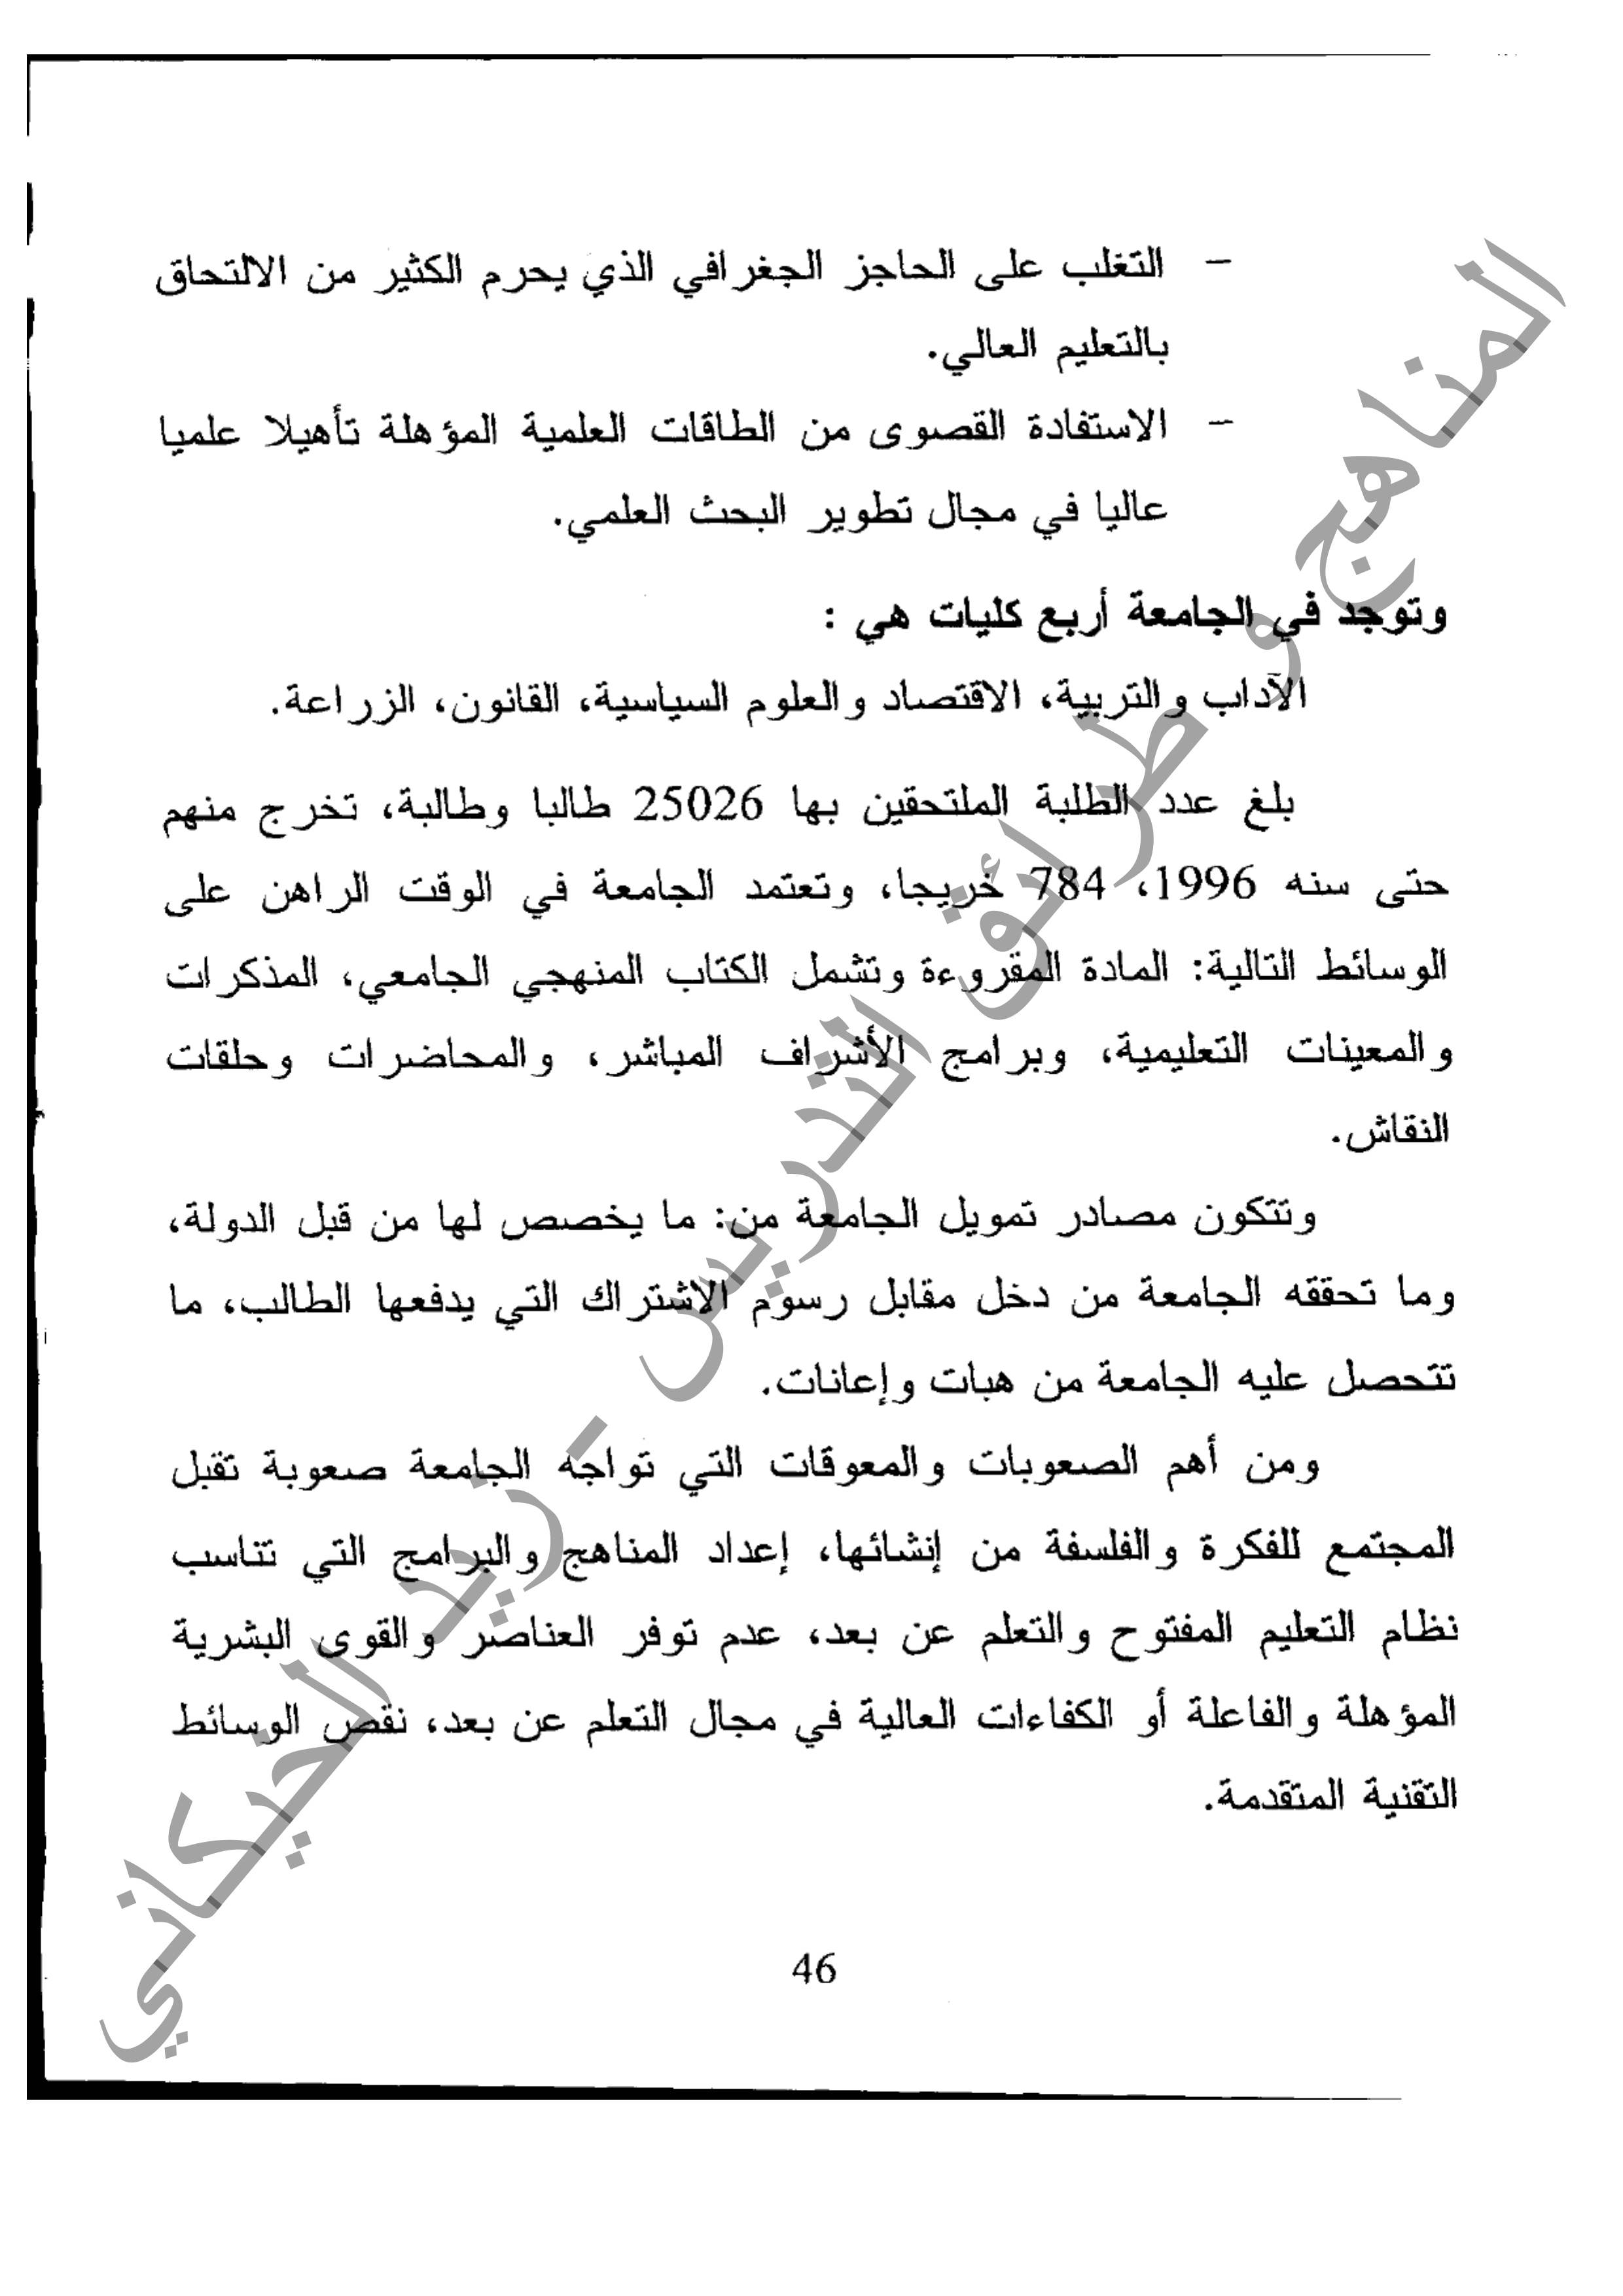 - التغلب على الحاجز الجغرافي الذي يحرم الكثير من الالتحاق
بالتعليم العالي.
- الاستفادة القصوى من الطاقات العلمية المؤهلة تأهيلا علميا
عاليا في مجال تطوير البحث العلمي.
وتوجد في الجامعة أربع كليات هي :
الآداب والتربية، الاقتصاد والعلوم السياسية، القانون، الزراعة.
بلغ عدد الطلبة الملتحقين بها 25026 طالبا وطالبة، تخرج منهم
حتى سنه 1996، 784 خريجا، وتعتمد الجامعة في الوقت الراهن على
الوسائط التالية: المادة المقروءة وتشمل الكتاب المنهجي الجامعي، المذكرات
والمعينات التعليمية، وبرامج الأشراف المباشر، والمحاضرات وحلقات
النقاش.
وتتكون مصادر تمويل الجامعة من: ما يخصص لها من قبل الدولة،
وما تحققه الجامعة من دخل مقابل رسوم الاشتراك التي يدفعها الطالب، ما
تتحصل عليه الجامعة من هبات وإعانات.
ومن أهم الصعوبات والمعوقات التي تواجه الجامعة صعوبة تقبل
المجتمع للفكرة والفلسفة من إنشائها، إعداد المناهج والبرامج التي تتاسب
نظام التعليم المفتوح والتعلم عن بعد، عدم توفر العناصر والقوى البشرية
المؤهلة والفاعلة أو الكفاءات العالية في مجال التعلم عن بعد، نقص الوسائط
التقنية المتقدمة.
46
المناهج وطرائق التدريس - زيد الخيكاني